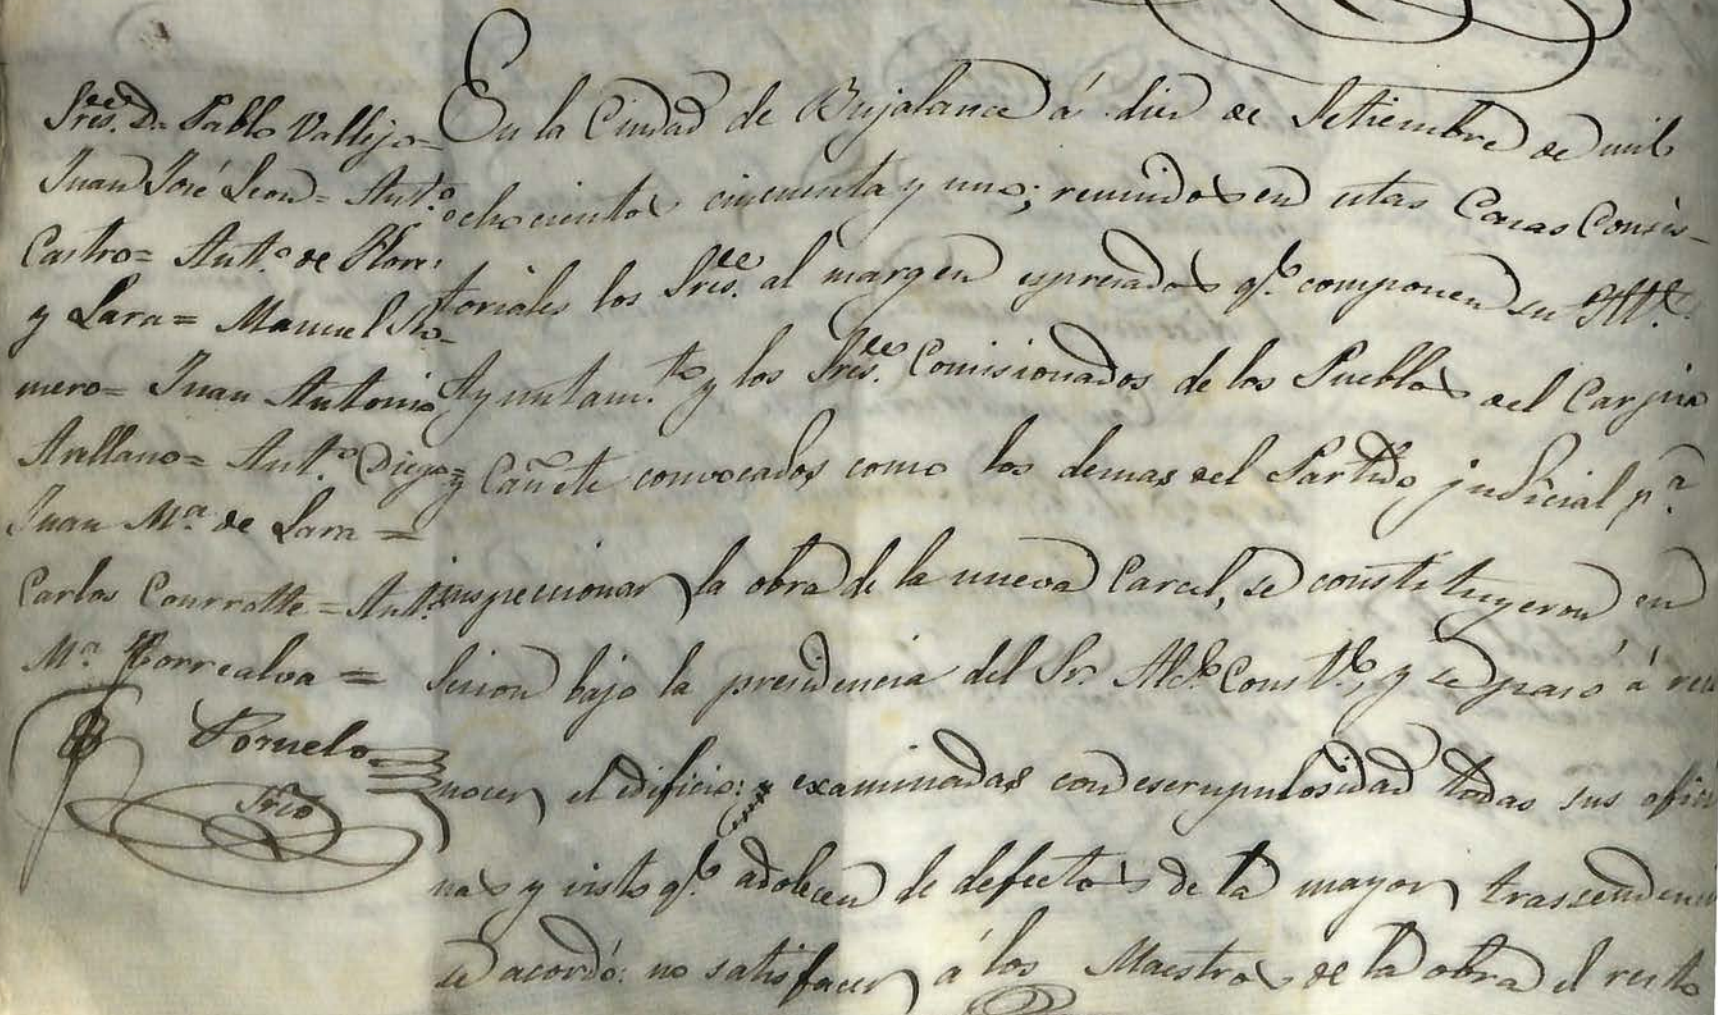 Sres. Dn. Pablo Vallejo=
Juan José Leon= Ant.o
Castro= Ant.o de Flores
y Lara= Manuel Ro-
mero= Juan Antonio
Arellano= Ant.o Diego=
Juan M.a de Lara =
Carlos Courrotte= Ant.o
M.a Torrealva =
Pornelo
Srio
En la Ciudad de Bujalance á diez de Setiembre de mil
ochocientos cincuenta y uno; reunidos en estas Casas Consis-
toriales los Sres. al margen espresados q.e componen su Ill.e
Ayuntam.to y los Sres. Comisionados de los Pueblos del Carpio
y Cañete convocados como los demas del Partido judicial p.a
inspeccionar la obra de la nueva Carcel, se constituyeron en
sesion bajo la presidencia del Sr. Alc.e Const.l, y se pasó á reco
nocer el edificio: y examinadas con escrupulosidad todas sus ofici
nas y visto q.e adolecen de defectos de la mayor trascendencia
se acordó: no satisfacer á los Maestros de la obra el resto